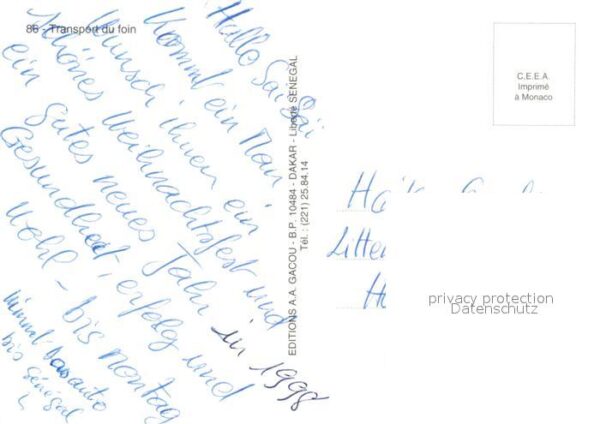 86 - Transport du foin
Hallo
Kommt ein Mann
Wünsch ihnen ein
schönes Weihnachtsfest und
ein Gutes neues Jahr in 1998
Gesundheit erfolg und
Wohl - bis montag
nimmt
bis sénégal
EDITIONS A.A. GACOU - B.P. 10484 - DAKAR - Liberté SENEGAL
Tél. : (221) 25.84.14
C.E.E.A.
Imprimé
à Monaco
privacy protection
Datenschutz